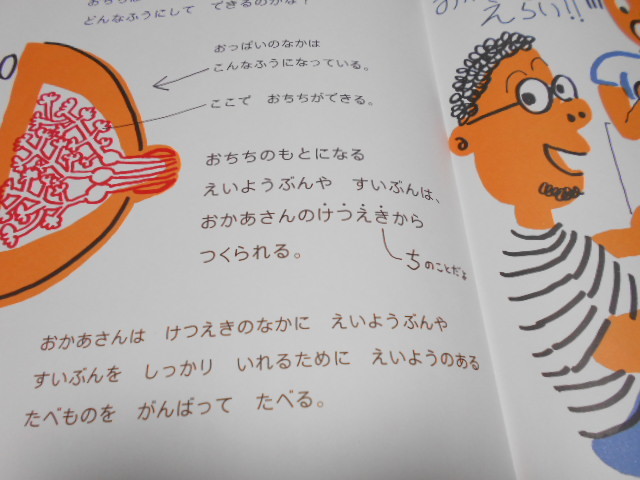 どんなふうにして できるのかな?
おっぱいのなかは
こんなふうになっている。
ここで おちちができる。
おちちのもとになる
えいようぶんや すいぶんは、
おかあさんのけつえきから
つくられる。
ちのことだよ
おかあさんは けつえきのなかに えいようぶんや
すいぶんを しっかり いれるために えいようのある
たべものを がんばって たべる。
えらい!!